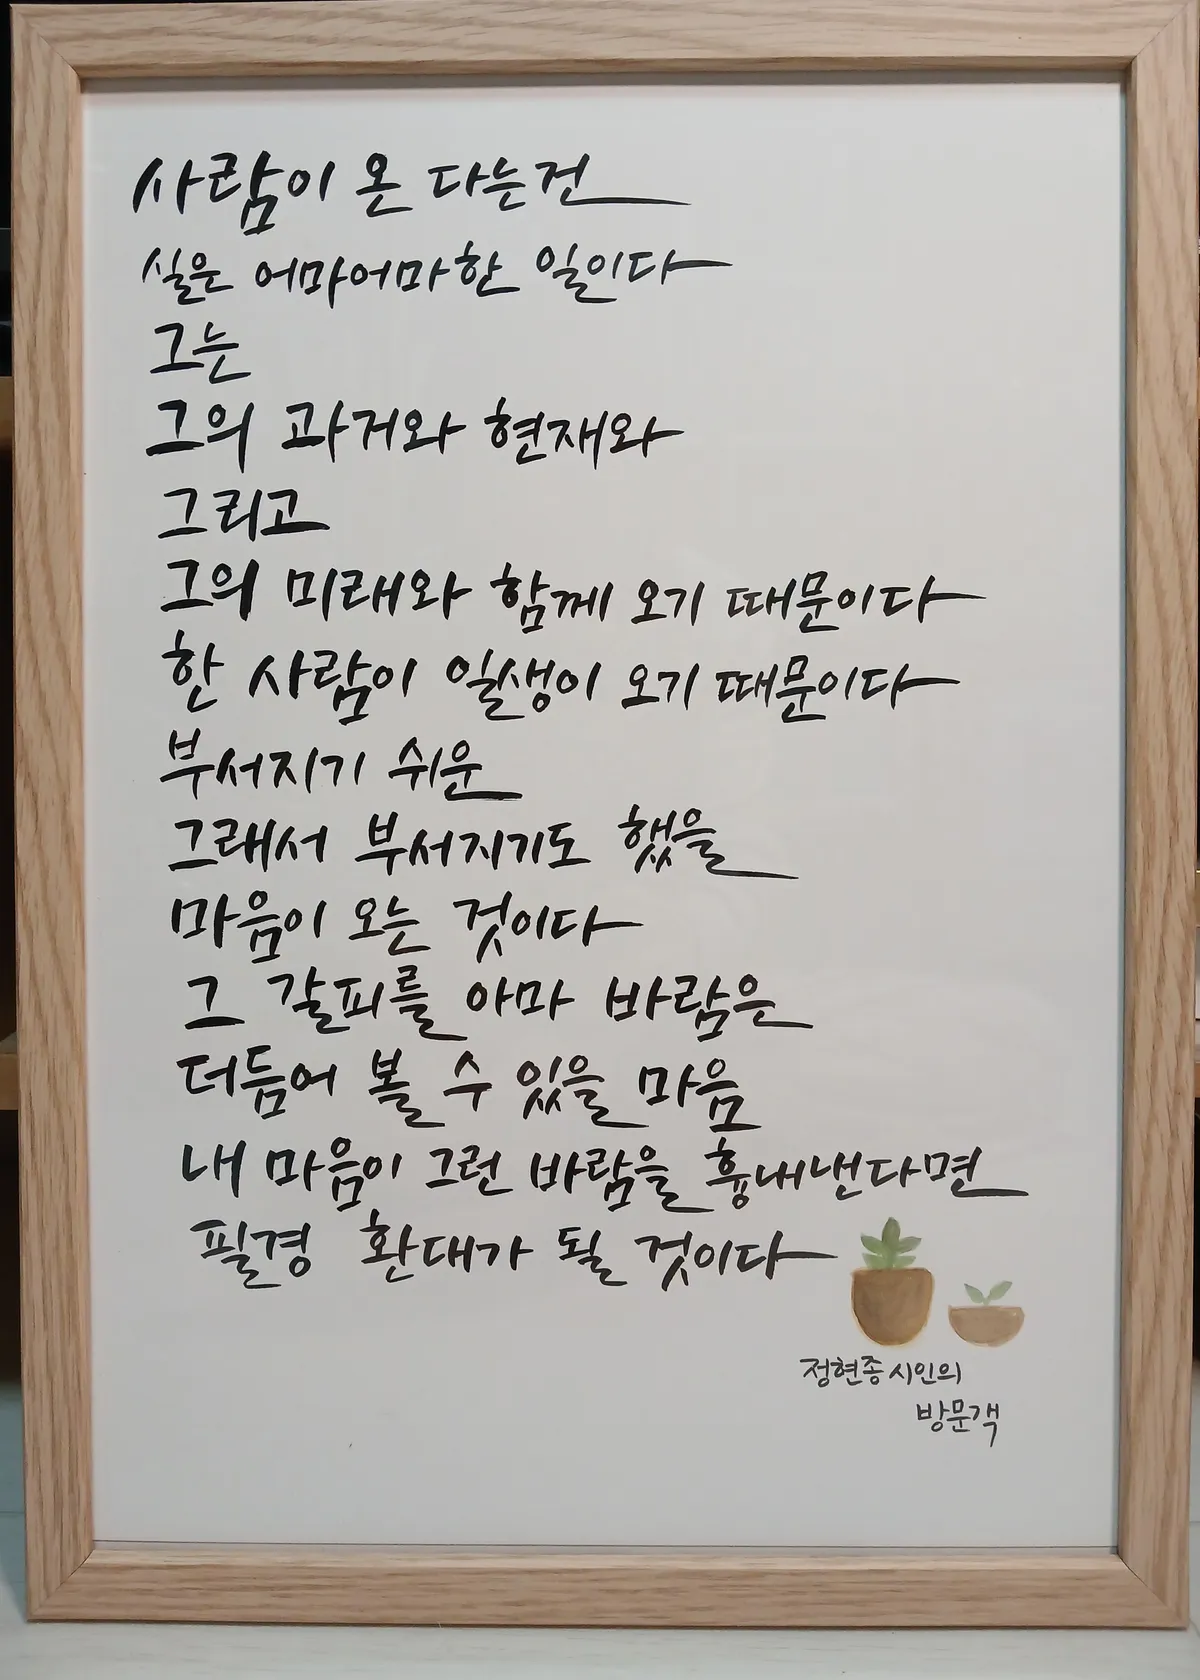 사람이 온 다는건
실은 어마어마한 일이다
그는
그의 과거와 현재와
그리고
그의 미래와 함께 오기 때문이다
한 사람이 일생이 오기 때문이다
부서지기 쉬운
그래서 부서지기도 했을
마음이 오는 것이다
그 갈피를 아마 바람은
더듬어 볼 수 있을 마음
내 마음이 그런 바람을 흉내낸다면
필경 환대가 될 것이다
정현종 시인의
방문객